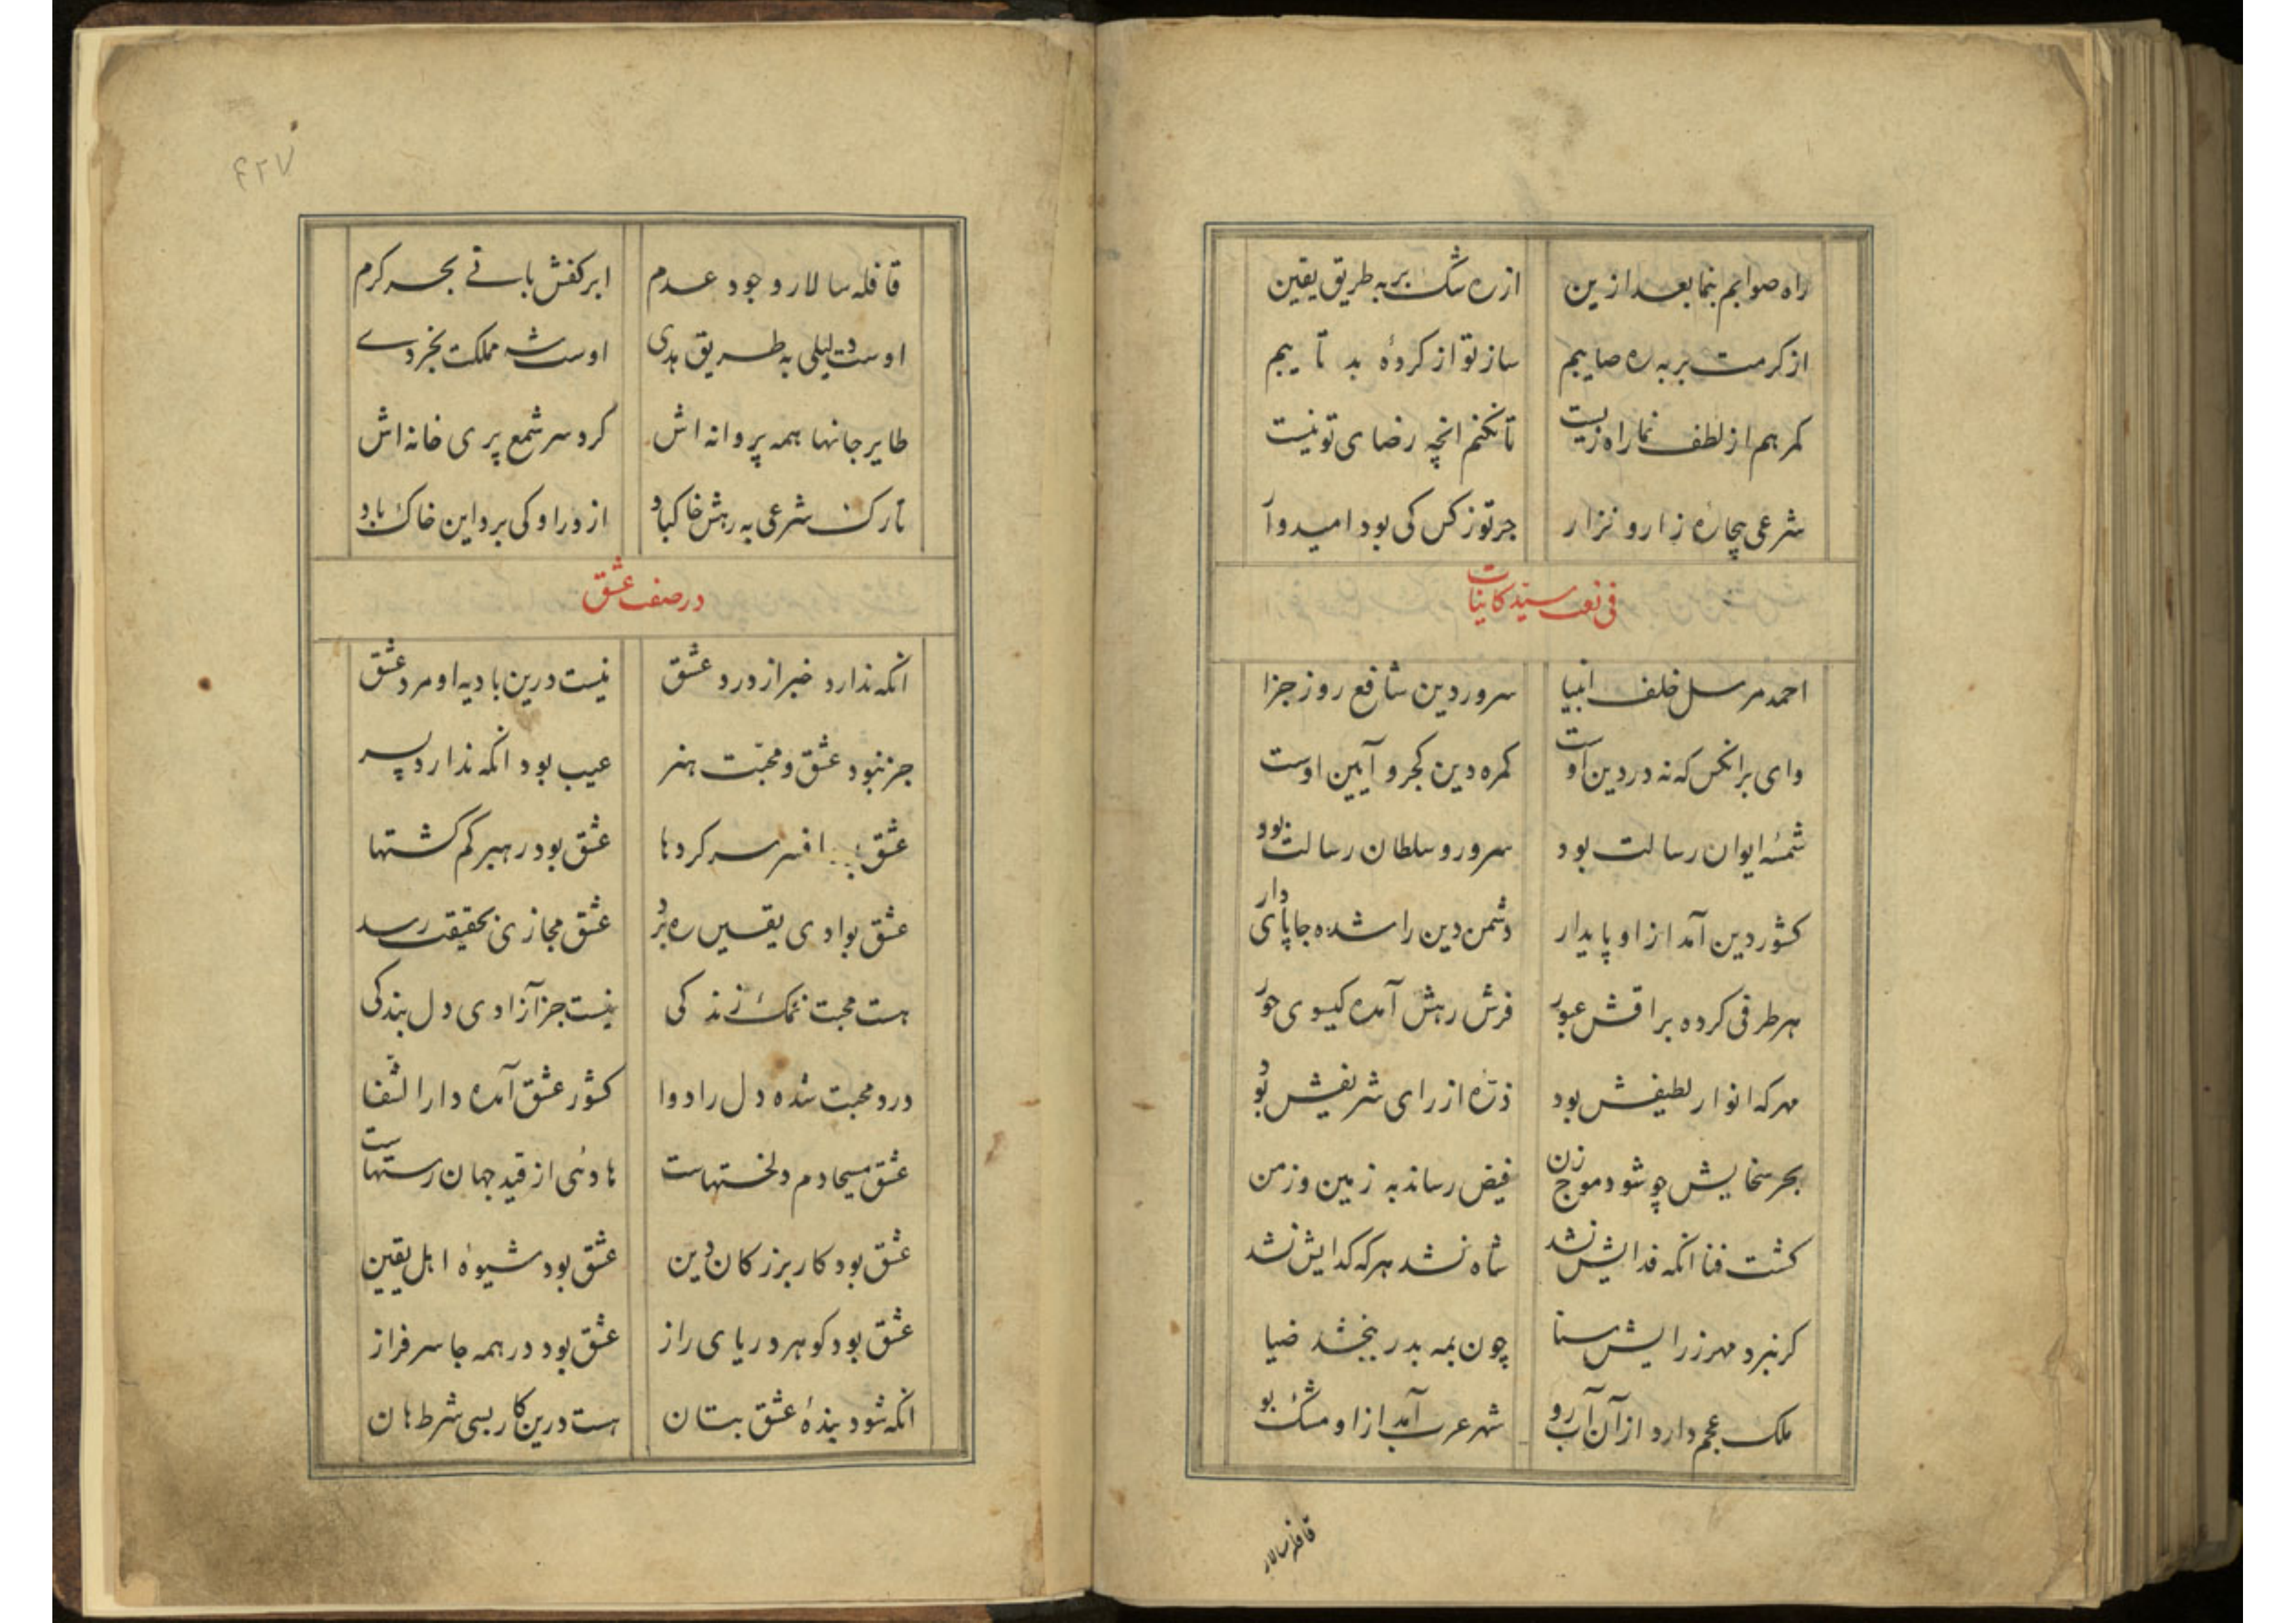 راه صوابم بنما بعد ازین از ره شک بر به طریق یقین
از کرمت بر به ره صایبم ساز تو از کردهٔ بد تایبم
کمرهم از لطف نما راه زیست تا نکنم انچه رضای تو نیست
شرعی بیچارهٔ زار و نزار جز تو ز کس کی بود امیدوار
فی نعت سید کاینات
احمد مرسل خلف انبیا سرور دین شافع روز جزا
وای بر انکس که نه در دین اوست کمره دین کجرو آیین اوست
شمسهٔ ایوان رسالت بود سرور و سلطان رسالت بود
کشور دین آمد از او پایدار دشمن دین را شده جا پای دار
هر طرفی کرده براقش عبور فرش رهش آمده کیسوی حور
مهر که انوار لطیفش بود ذرهٔ از رای شریفش بود
بحر سخایش چو شود موج زن فیض رساند به زمین و زمن
کشت فنا انکه فدایش نشد شاه نشد هر که کدایش نشد
کر نبرد مهر ز رایش سنا چون بمه بدر ببخشد ضیا
ملک عجم دارد از آن آب رو شهر عرب آمد از او مشک بو
قافله سالار
۴۲۷
قافله سالار وجود عدم ابر کفش باقی بحر کرم
اوست دلیلی به طریق هدی اوست شه مملکت بخردی
طایر جانها همه پروانه اش کرد سر شمع پری خانه اش
تارک شرعی به رهش خاک باد از در او کی برد این خاک باد
در صفت عشق
انکه ندارد خبر از درد عشق نیست درین بادیه او مرد عشق
جز نبود عشق و محبت هنر عیب بود انکه ندارد پسر
عشق افسر سر کردها عشق بود رهبر کم کشتها
عشق بوادی یقین ره برد عشق مجازی بحقیقت رسد
هست محبت نمک زندکی نیست جز آزادی دل بندکی
درد محبت شده دل را دوا کشور عشق آمده دار الشفا
عشق مسیحا دم دلخستهاست هادی از قید جهان رستهاست
عشق بود کار بزرکان دین عشق بود شیوهٔ اهل یقین
عشق بود کوهر دریای راز عشق بود در همه جا سرفراز
انکه شود بندهٔ عشق بتان هست درین کار بسی شرط هان